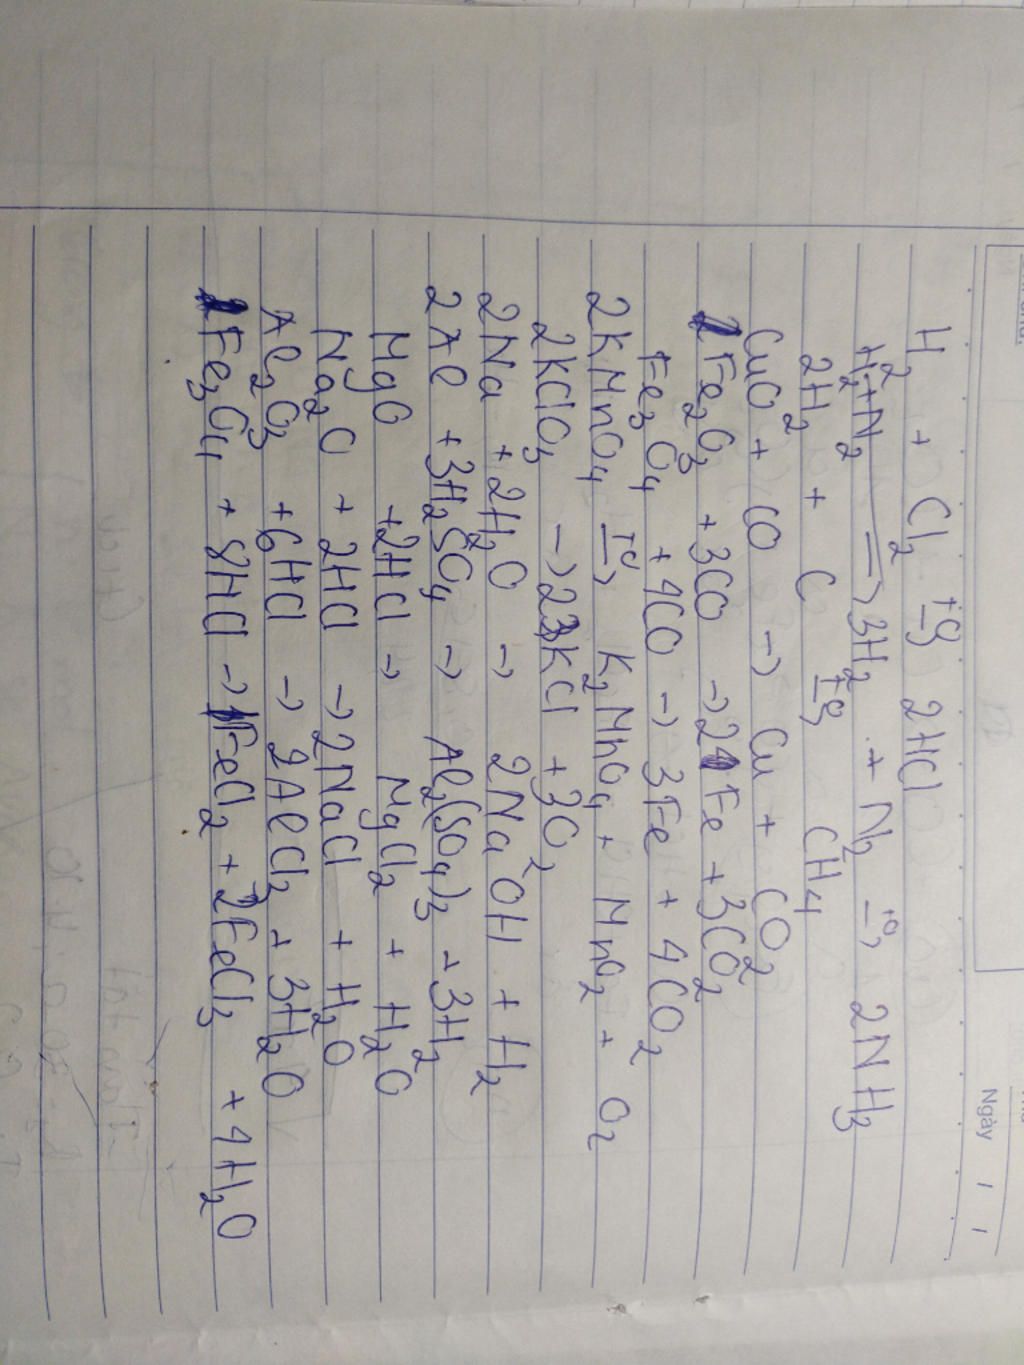 Ngày / /
H₂ + Cl₂ →(t°) 2HCl
H₂+N₂ => 3H₂ + N₂ →(t°) 2NH₃
2H₂ + C →(t°) CH₄
CuO + CO → Cu + CO₂
Fe₂O₃ + 3CO → 2Fe + 3CO₂
Fe₃O₄ + 4CO → 3Fe + 4CO₂
2KMnO₄ →(t°) K₂MnO₄ + MnO₂ + O₂
2KClO₃ → 2KCl + 3O₂
2Na + 2H₂O → 2NaOH + H₂
2Al + 3H₂SO₄ → Al₂(SO₄)₃ + 3H₂
MgO + 2HCl → MgCl₂ + H₂O
Na₂O + 2HCl → 2NaCl + H₂O
Al₂O₃ + 6HCl → 2AlCl₃ + 3H₂O
Fe₃O₄ + 8HCl → FeCl₂ + 2FeCl₃ + 4H₂O